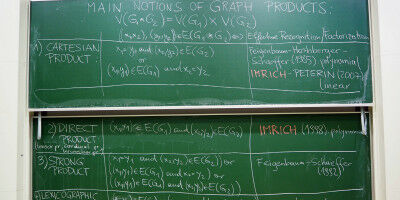 MAIN NOTIONS OF GRAPH PRODUCTS:
V(G₁*G₂) = V(G₁) × V(G₂)
Effective Recognition/Factorization
1) CARTESIAN PRODUCT:
x₁=y₁ and (x₂,y₂)∈E(G₂)
or
(x₁,y₁)∈E(G₁) and x₂=y₂
Feigenbaum-Hershberger-
Schaffer (1985) polynomial
IMRICH-PETERIN (2007)
linear
2) DIRECT PRODUCT
(x₁,y₁)∈E(G₁) and (x₂,y₂)∈E(G₂)
IMRICH (1998), polynomial
3) STRONG PRODUCT
x₁=y₁ and (x₂,y₂)∈E(G₂) or
(x₁,y₁)∈E(G₁) and x₂=y₂ or
(x₁,y₁)∈E(G₁) and (x₂,y₂)∈E(G₂)
Feigenbaum-Schaffer
(1992)
4) LEXICOGRAPHIC